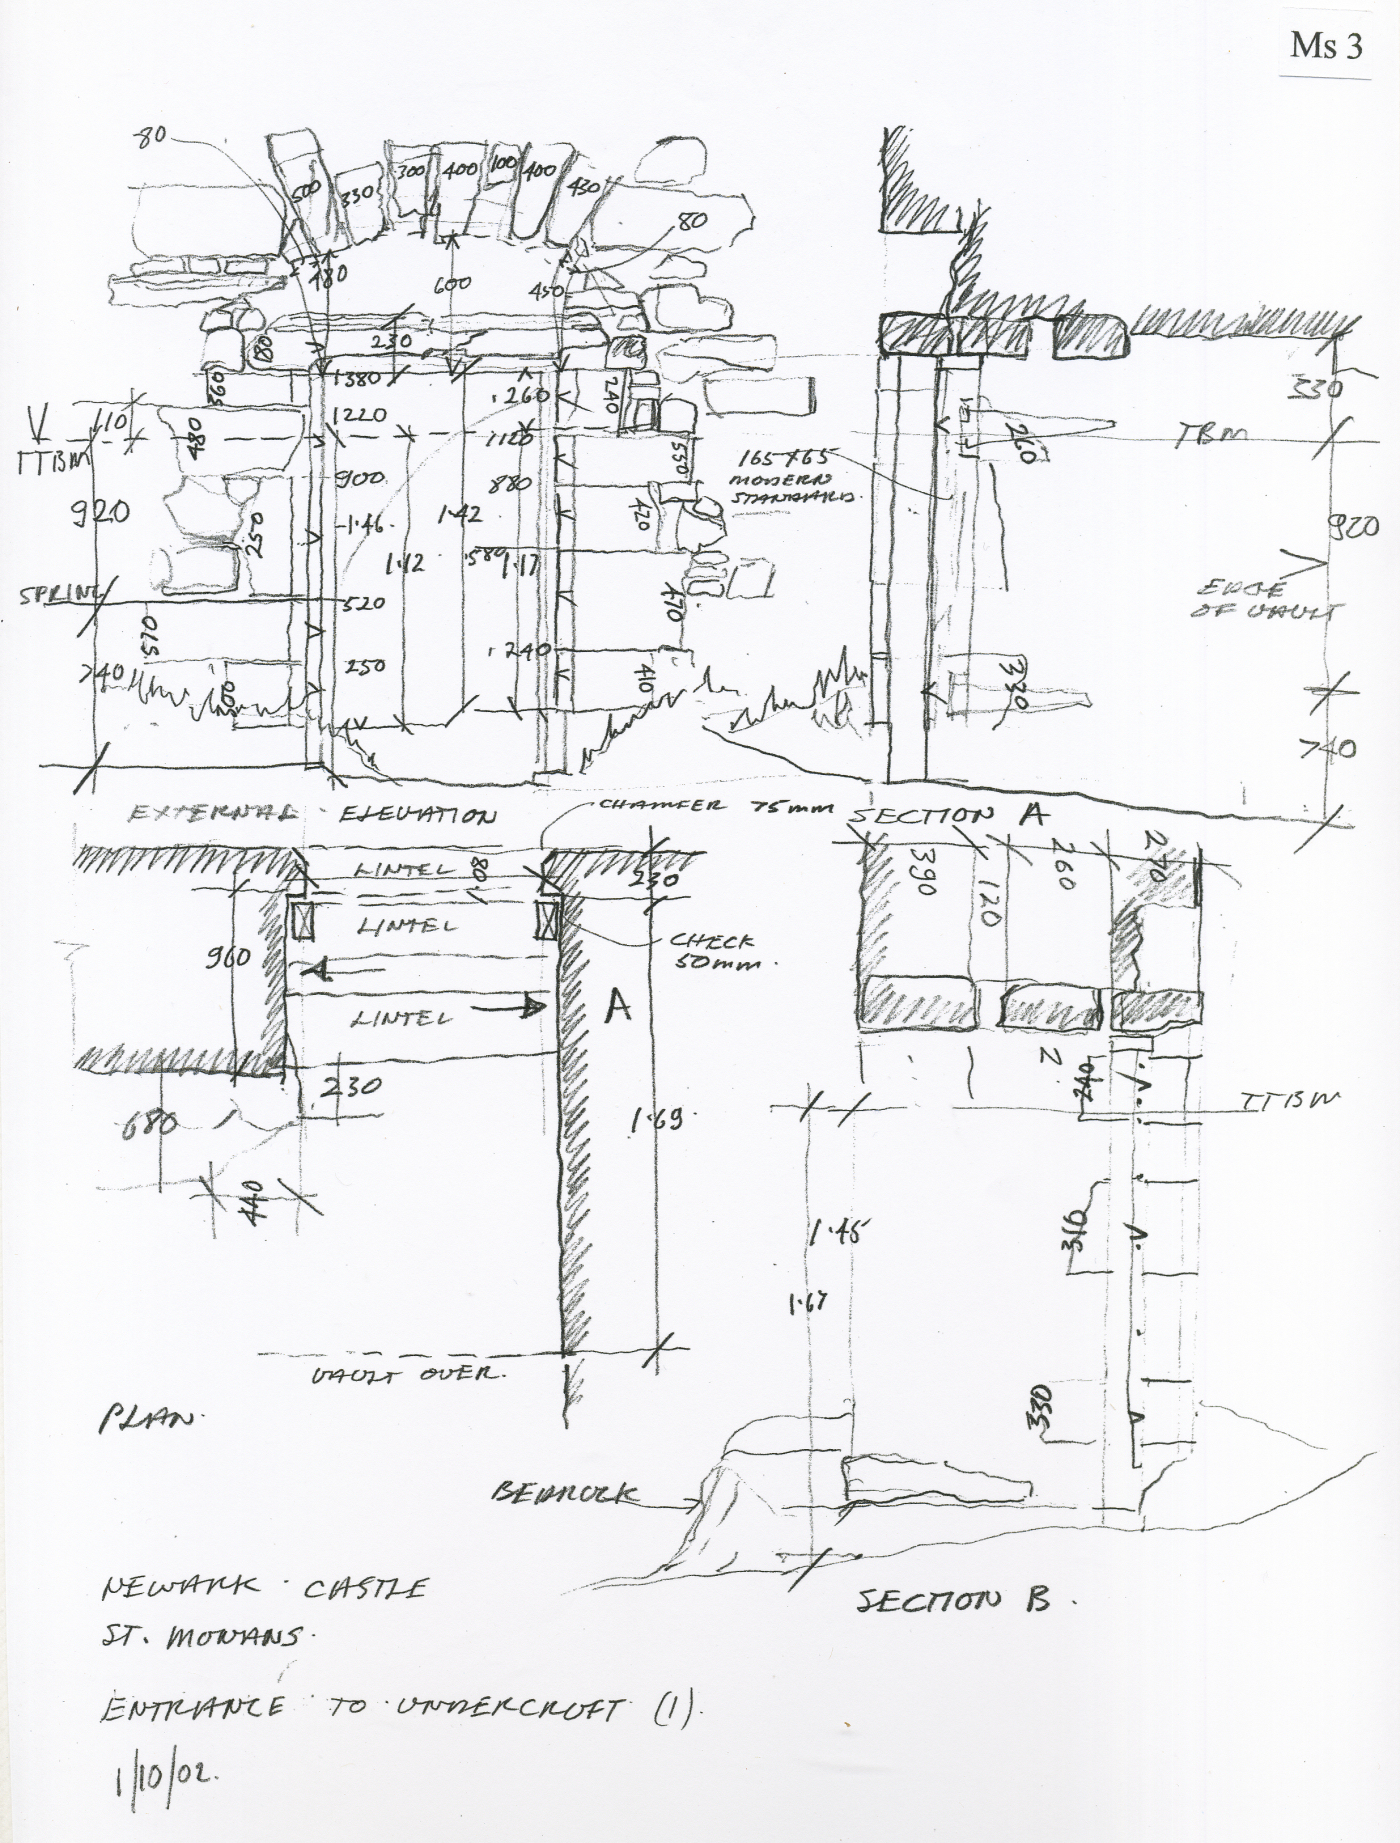 Ms 3
80
500
330
300
400
100
400
430
80
480
600
450
180
230
360
1380
.260
240
110
1220
1120
480
TTBM
900
880
550
920
1.46
1.42
420
250
1.12
.580
1.17
SPRING
520
470
.570
250
.240
740
410
165 X 65
MODERN
STANDARD.
260
TBM
330
920
EDGE
OF VAULT
330
740
EXTERNAL ELEVATION
CHAMFER 75mm
SECTION A
LINTEL
180
230
390
120
260
270
LINTEL
960
CHECK
50mm.
LINTEL
A
230
680
1.69
440
240
TTBM
1.45
310
1.67
330
VAULT OVER.
PLAN.
BEDROCK
SECTION B.
NEWARK CASTLE
ST. MONANS.
ENTRANCE TO UNDERCROFT (1).
1/10/02.